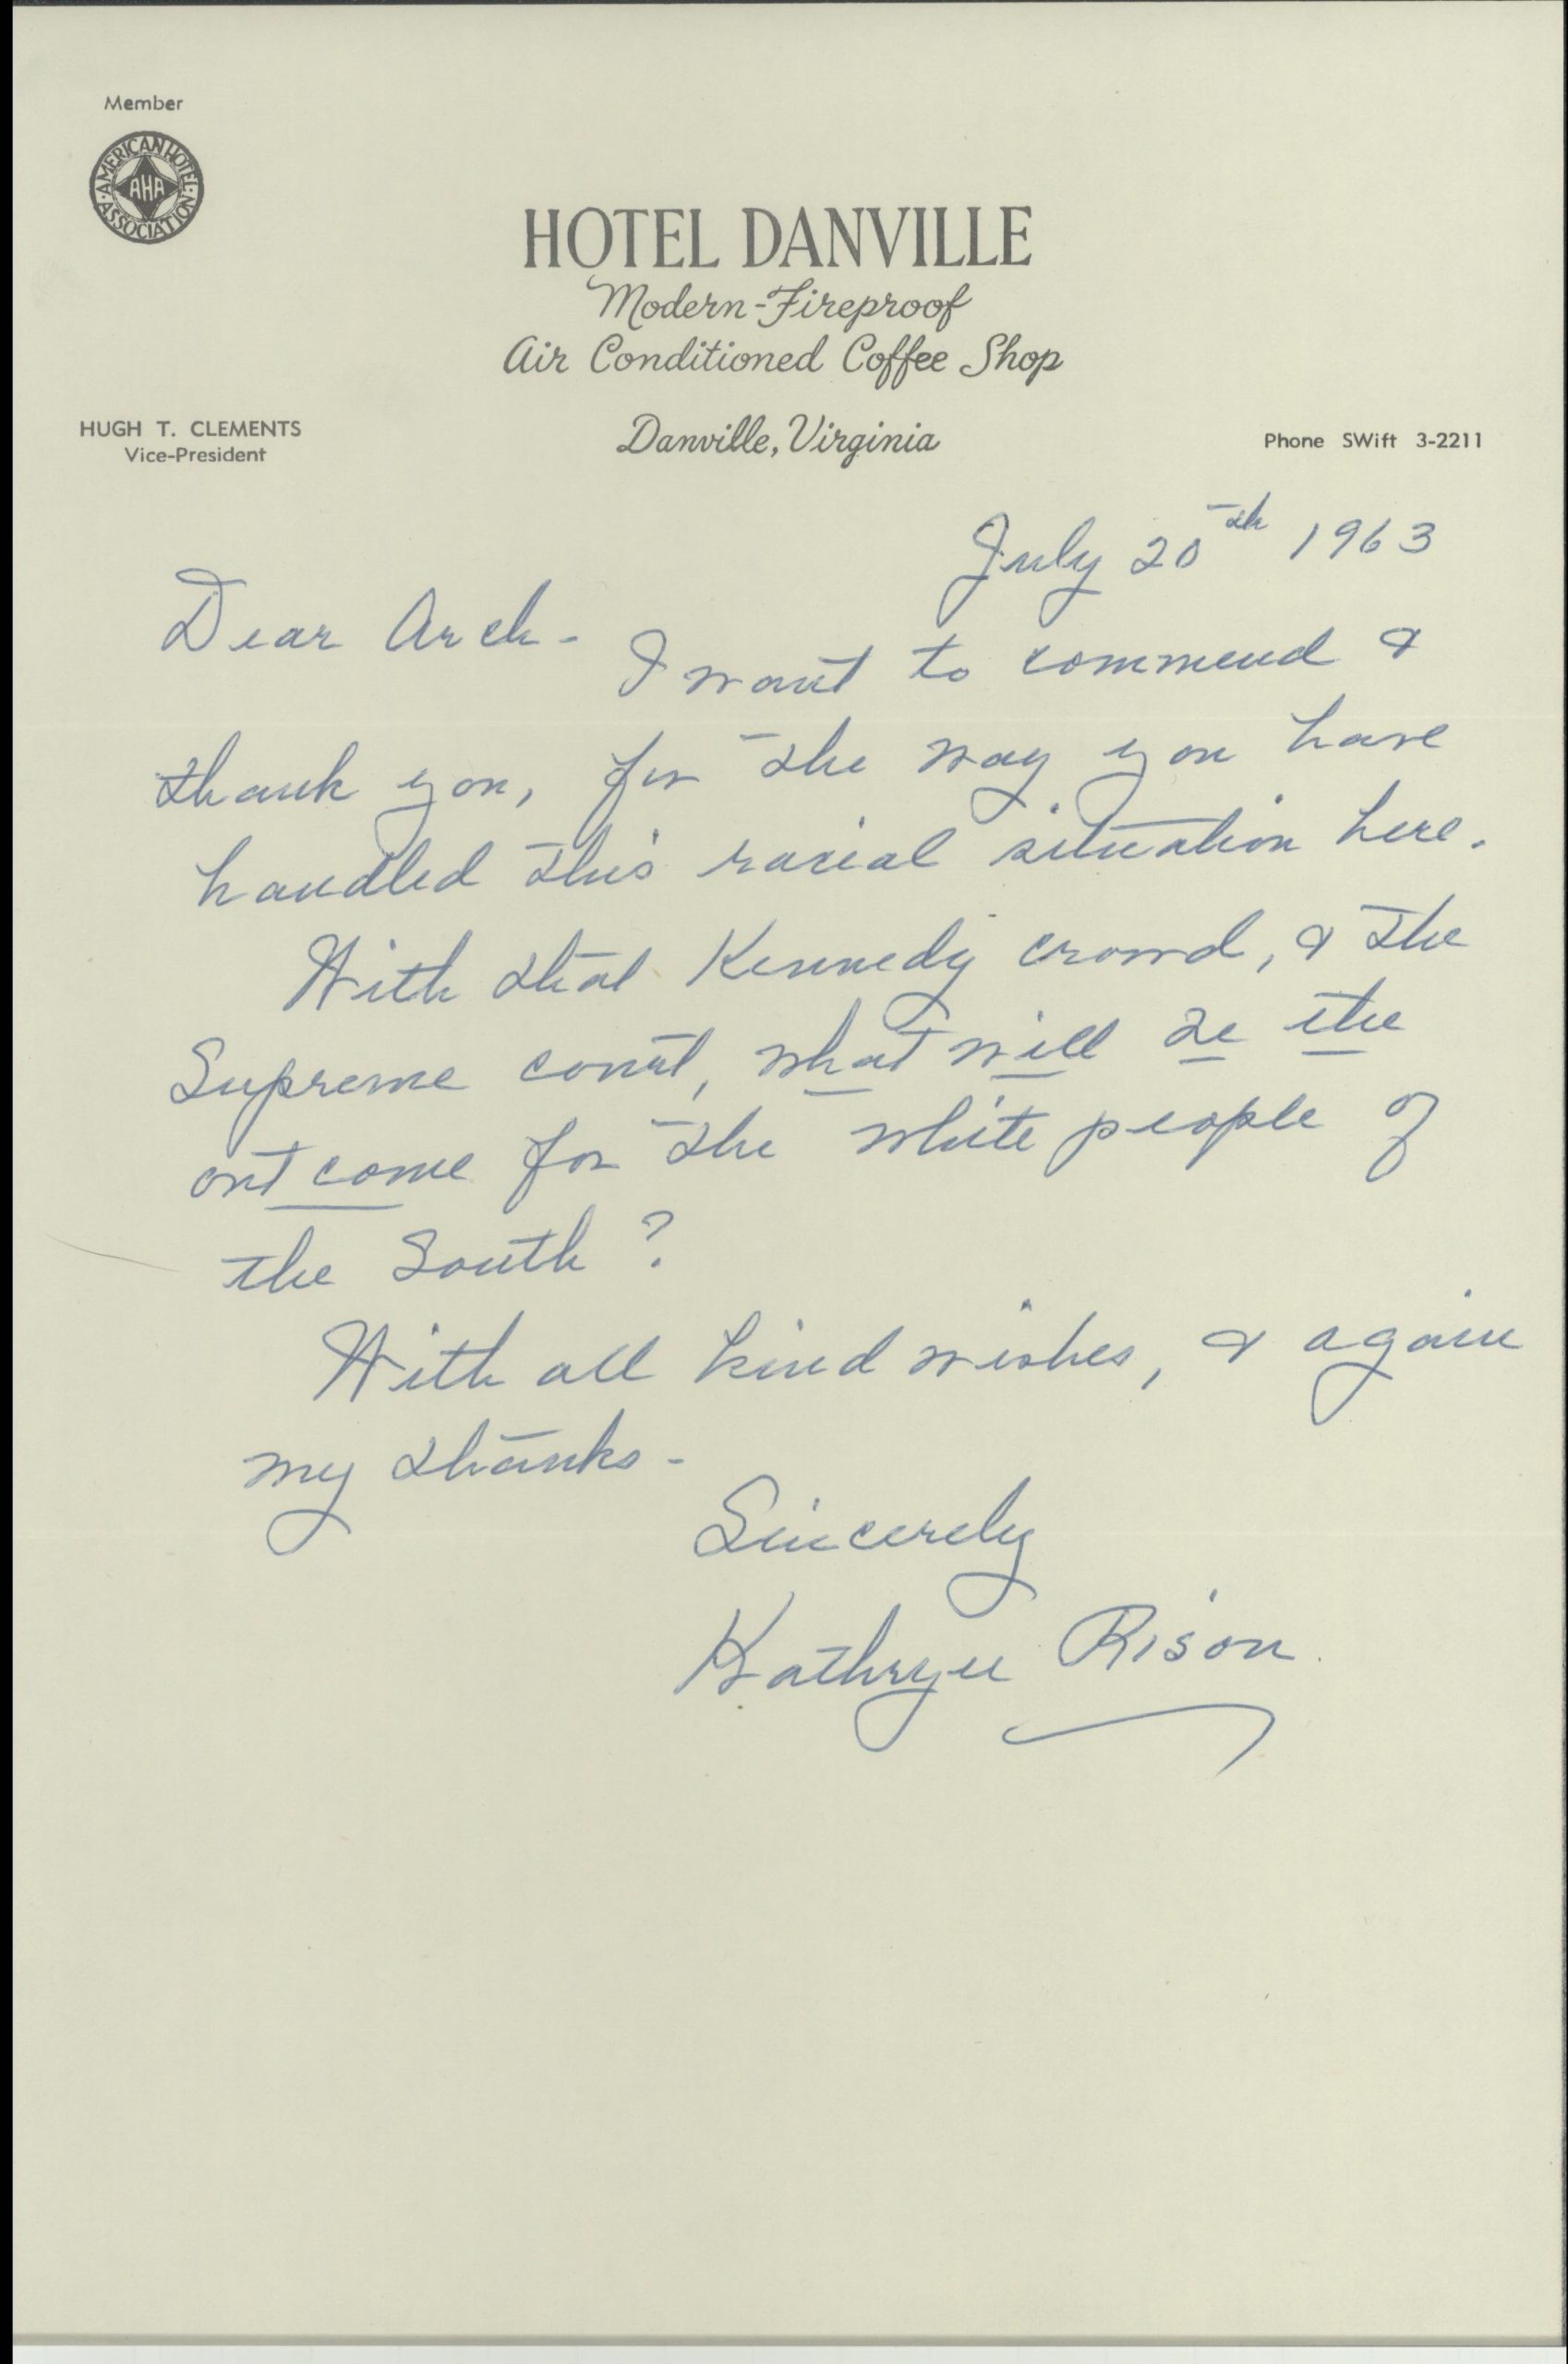 Member
AMERICAN HOTEL ASSOCIATION
AHA
HOTEL DANVILLE
Modern-Fireproof
Air Conditioned Coffee Shop
HUGH T. CLEMENTS
Vice-President
Danville, Virginia
Phone SWift 3-2211
July 20th 1963
Dear Arch-
I want to commend &
thank you, for the way you have
handled this racial situation here.
With that Kennedy crowd, & the
Supreme court, what will be the
outcome for the white people of
the South?
With all kind wishes, & again
my thanks-
Sincerely
Kathryn Rison